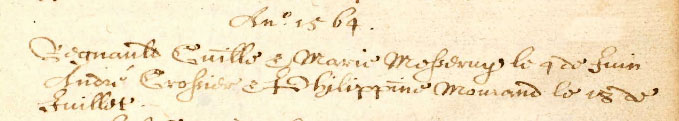 An.º 1564.
Regnaulte Guille e Marie Messeruy le 4 de Juin
André Grossier et Philippine Mourand le 18 de
Juillet.